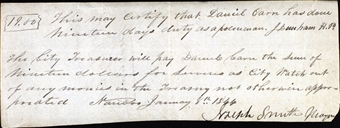 19.00 This may certify that Daniel Carn has done
Nineteen days duty as a policeman.
The City Treasurer will pay Daniel Carn the sum of
Nineteen dollars for services as City Watch out
of any monies in the Treasury not otherwise appro-
priated Nauvoo January 8th 1844
Joseph Smith Mayor